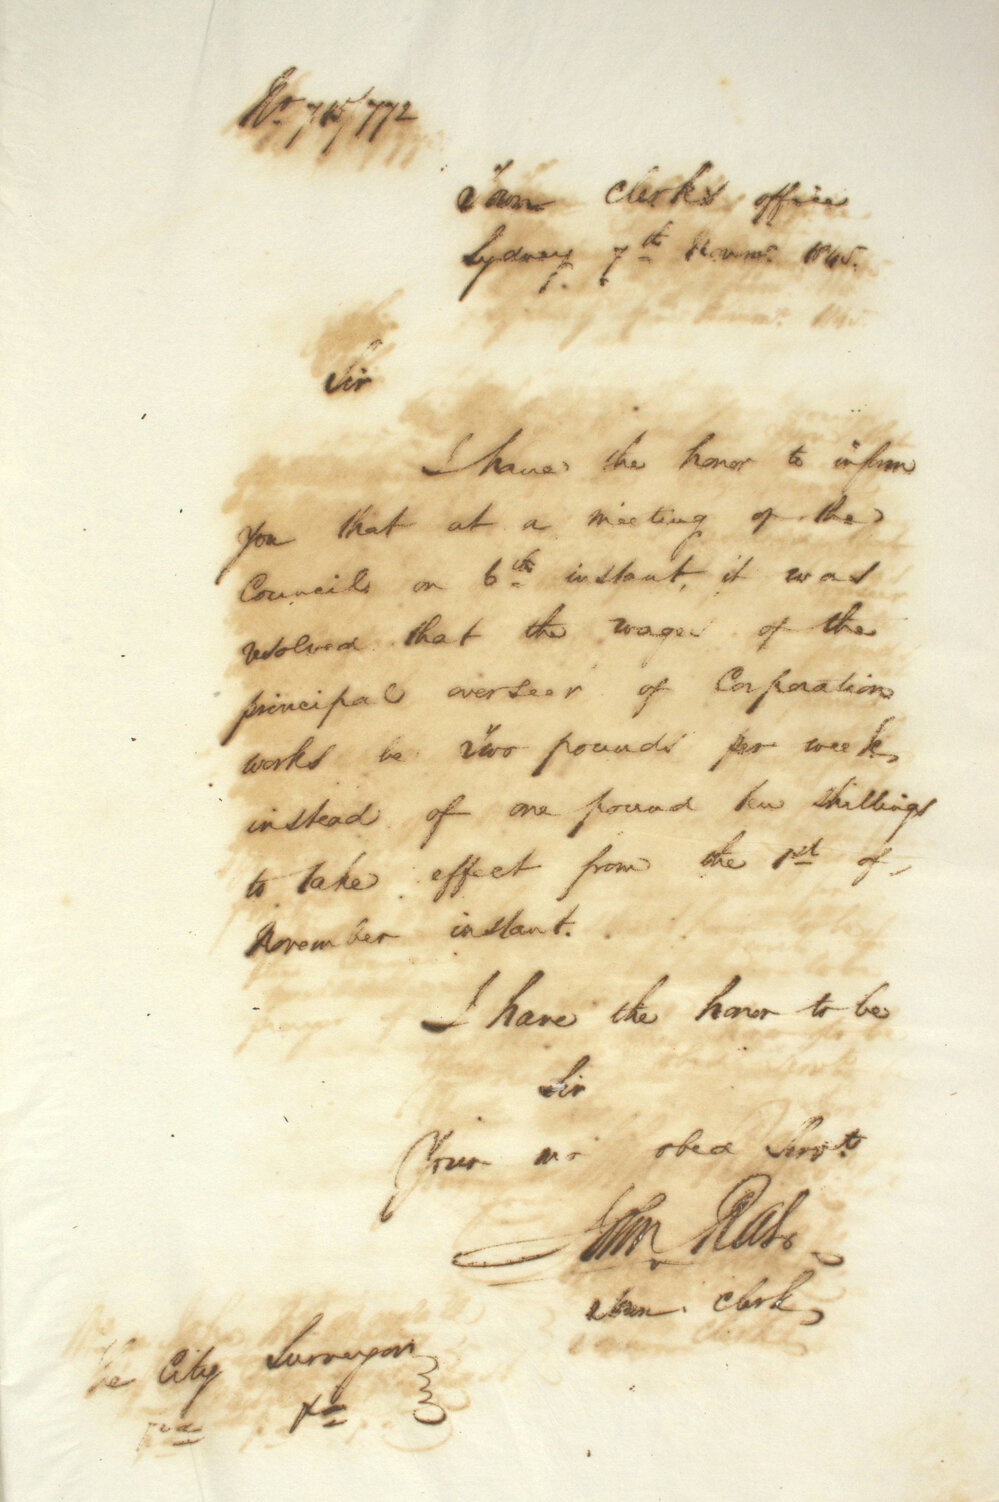 Town Clerks office
Sydney 7th Novr. 1845.
Sir
I have the honor to inform
you that at a meeting of the
Council on 6th instant, it was
resolved that the wages of the
principal overseer of Corporation
works be Two pounds per week
instead of one pound ten shillings
to take effect from the 1st of
November instant.
I have the honor to be
Sir
Your mo obed Servt.
John Rae
Town Clerk
The City Surveyor
&c &c